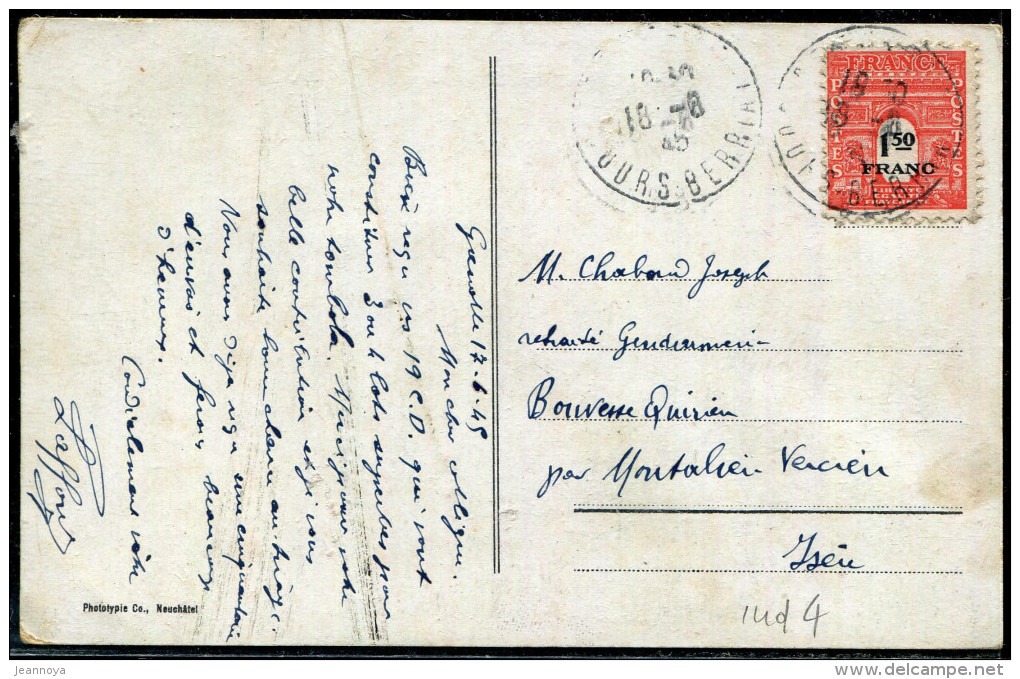 Grenoble 17-6-45
Mon cher collègue.
Bien reçu les 19 C.D. qui vont
constituer 3 ou 4 lots superbes pour
notre tombola. Merci pour votre
belle contribution et je vous
souhaite bonne chance au tirage.
Nous avons déjà reçu une cinquantaine
d'envois et ferons beaucoup
d'heureux.
Cordialement vôtre
FRANCE
POSTES
POSTES
1 50
FRANC
COURS-BERRIAT
18 -6
45
M. Chaboud Joseph
retraité Gendarmerie
Bouvesse Quirieu
par Montalieu Vercieu
Isère
Phototypie Co., Neuchâtel
ind 4
jeannoya
delcampe.net